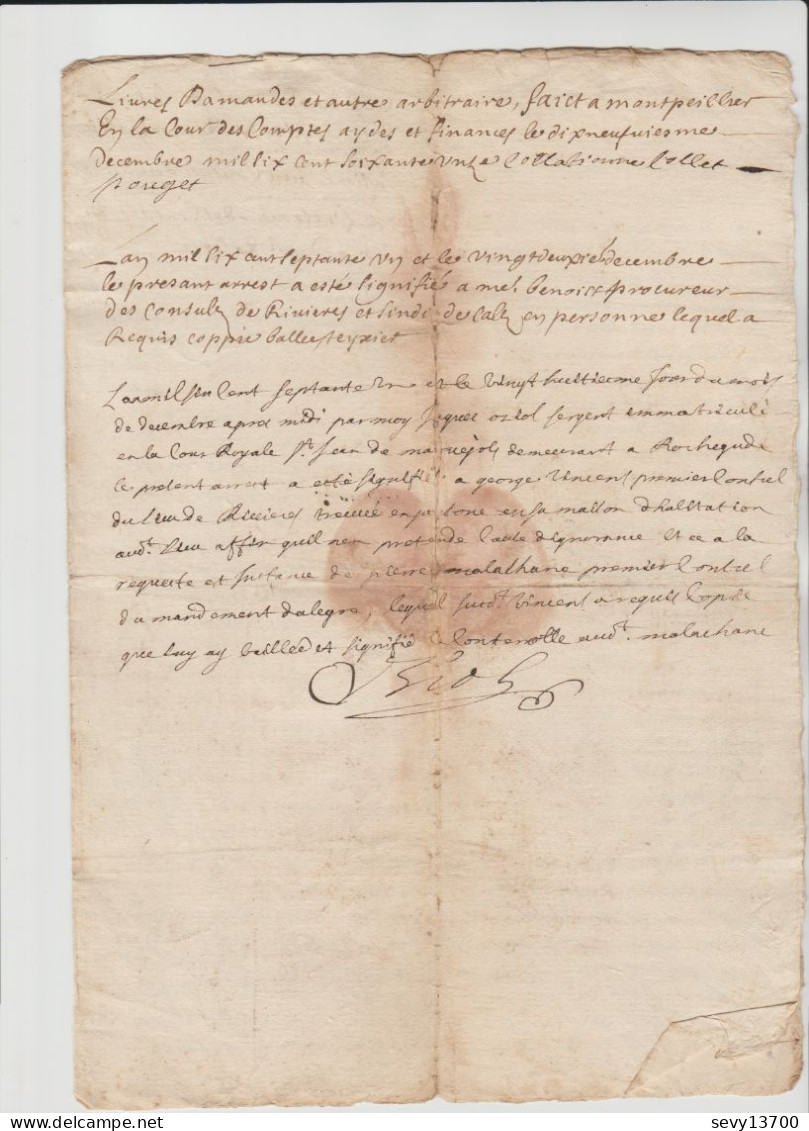 Livres Damandes et autre arbitraire, faict a montpeillier
En la Cour des Comptes aydes et finances le dixneufviesme
decembre mil six cent soixante unze Collationne Collet
pouget
Lan mil six cent septante un et le vingtdeuxie decembre
le presant arrest a esté signifié a me Benoict procureur
des Consulz de Rivieres et sindic de en personne lequel a
Requis coppie baillee teyxiet
Lan mil six Cent septante un et le vingt huitiesme Jour du mois
de decembre apres midi par moy Jaques oziol sergent immatriculé
en la Cour Royalle St Jean de maruejols demeurant a Rochegude
le present arrest a esté signifié a george vincens premier Consul
du lieu de Rivieres trouvé en personne en sa maison dhabitation
audt. lieu affin quil nen pretende Cause dignorance Et ce a la
requeste et Instance de pierre malachane premier Consul
du mandement dalegre, lequel sudt. vincens a requis Copie
que luy ay baillee et signifié audt. malachane
Oziol
delcampe.net
sevy13700